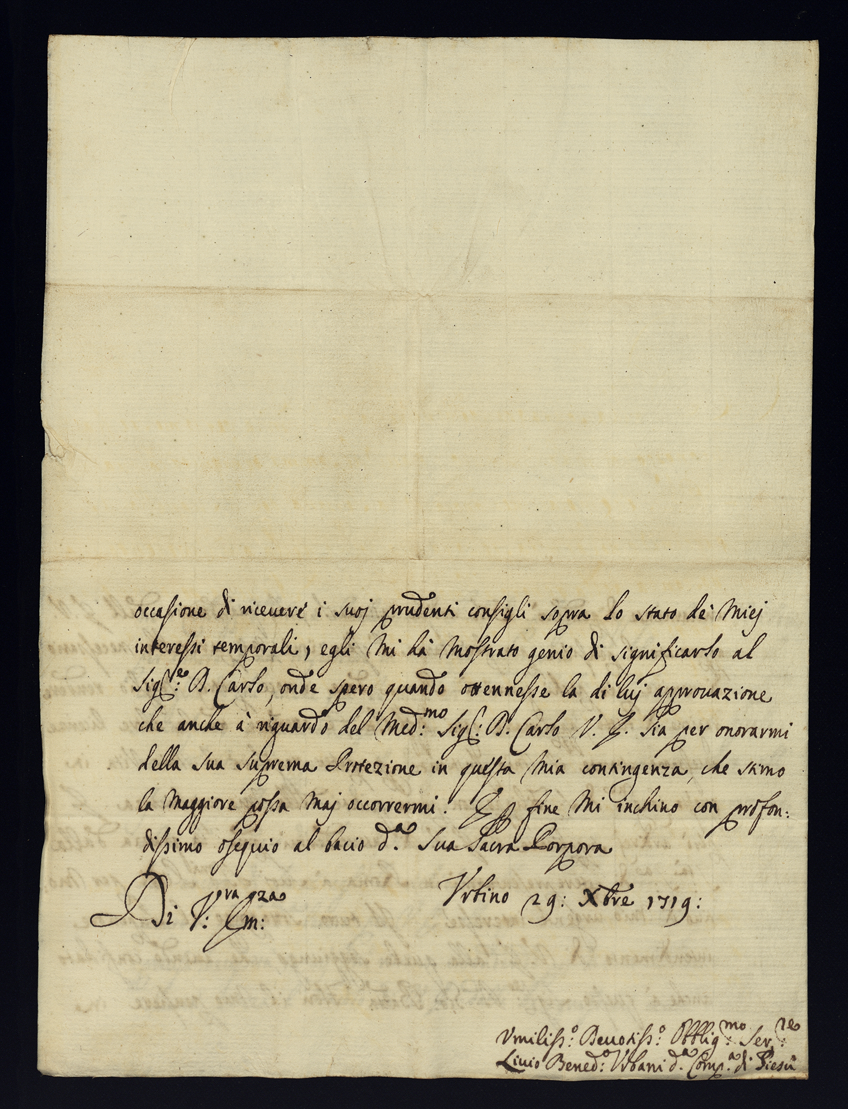 occasione di ricevere i suoj prudenti consigli sopra lo stato de' Miej
interessi temporali, egli Mi hà Mostrato genio di significarlo al
Sig.re D. Carlo, onde spero quando ottennesse la di luj approuazione
che anche à riguardo del Med:mo Sig: D. Carlo V. E. sia per onorarmi
della sua suprema Protezione in questa Mia contingenza, che stimo
la Maggiore possa Maj occorrermi. E p fine Mi inchino con profon:
dissimo ossequio al bacio d.a Sua Sacra Porpora
Di V:ra Em:za Vrbino 29: Xbre 1719:
Vmiliss:o Deuotiss:o Obblig:mo Ser:re
Liuio Bened:o Vrbani d.a Comp.a di Giesù